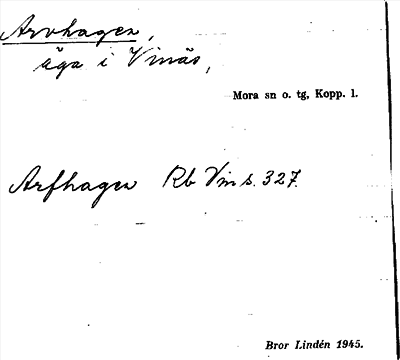 Arvhagen,
äga i Vinäs,
Mora sn o. tg, Kopp. l.
Arfhagen Rb Vin s. 327.
Bror Lindén 1945.